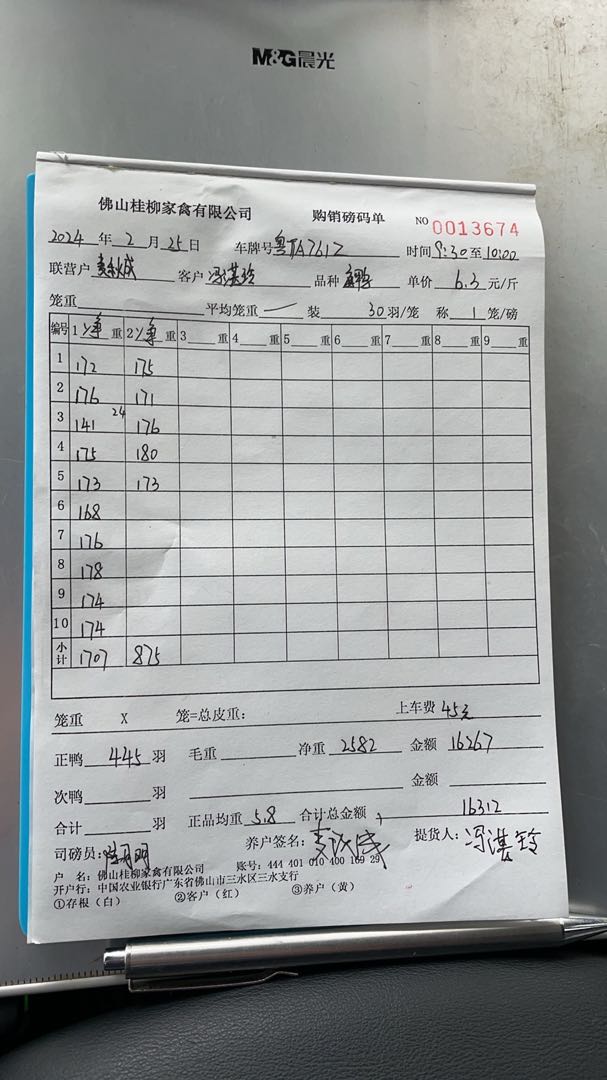 M&G晨光
佛山桂柳家禽有限公司 购销磅码单 NO 0013674
2024 年 2 月 25 日 车牌号 粤TA7617 时间 9:30 至 10:00
联营户 客户 冯淇玲 品种 单价 6.3 元/斤
笼重 平均笼重 一 装 30 羽/笼 称 1 笼/磅
编号 1 净 重 2 净 重 3 重 4 重 5 重 6 重 7 重 8 重 9 重
1 172 175
2 176 171
3 141 24 176
4 175 180
5 173 173
6 168
7 176
8 178
9 174
10 174
小计 1707 875
笼重 X 笼=总皮重: 上车费 45元
正鸭 445 羽 毛重 净重 2582 金额 16267
次鸭 羽 金额
合计 羽 正品均重 5.8 合计总金额 16312
司磅员: 养户签名: 提货人: 冯淇玲
户 名: 佛山桂柳家禽有限公司 账号: 444 401 010 400 169 29
开户行: 中国农业银行广东省佛山市三水区三水支行
①存根(白) ②客户(红) ③养户(黄)